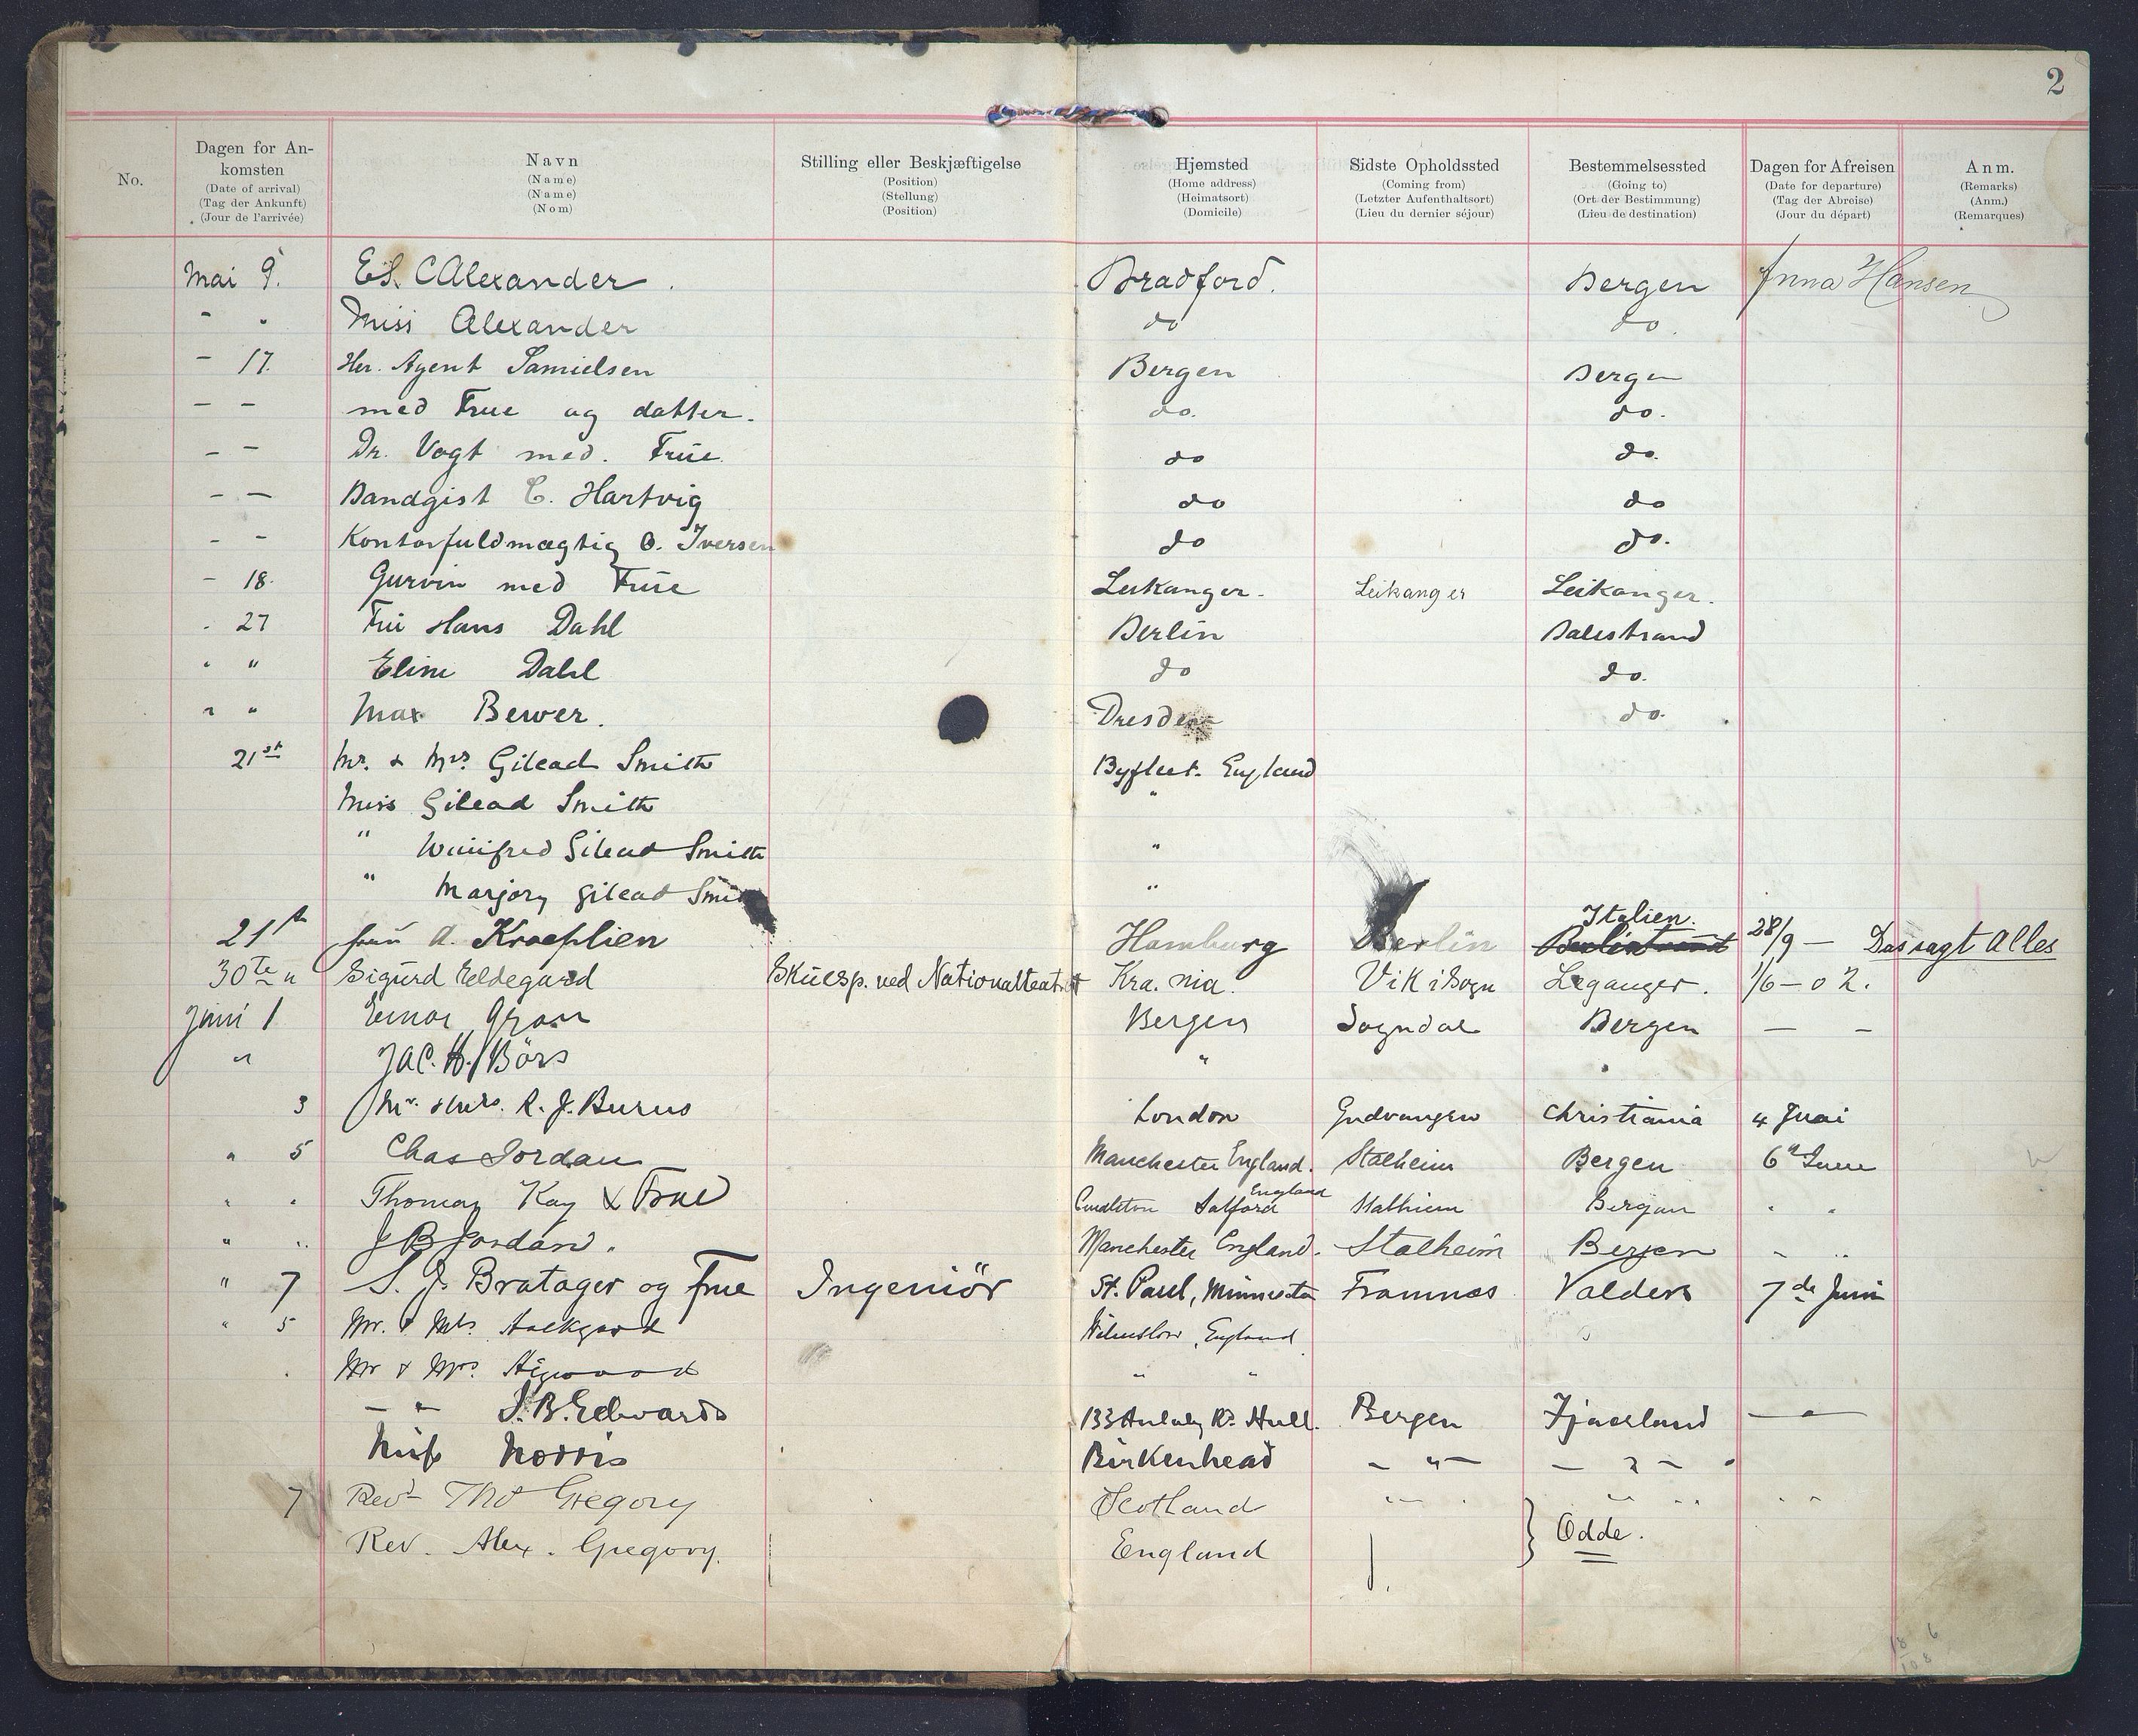 2
No.
Dagen for An-
komsten
(Date of arrival)
(Tag der Ankunft)
(Jour de l'arrivée)
Navn
(Name)
(Name)
(Nom)
Stilling eller Beskjæftigelse
(Position)
(Stellung)
(Position)
Hjemsted
(Home address)
(Heimatsort)
(Domicile)
Sidste Opholdssted
(Coming from)
(Letzter Aufenthaltsort)
(Lieu du dernier séjour)
Bestemmelsessted
(Going to)
(Ort der Bestimmung)
(Lieu de destination)
Dagen for Afreisen
(Date for departure)
(Tag der Abreise)
(Jour du départ)
Anm.
(Remarks)
(Anm.)
(Remarques)
Mai 9. C Alexander. Bradford. Bergen Anna Hansen
" " Miss Alexander do do.
- 17. Hr. Agent Samielsen Bergen Bergen
- - med Frue og datter. do. do.
- - Dr. Vogt med. Frue do do.
- - Bandgist C. Hartvig do do
- - Kontorfuldmægtig O. Iversen do do.
- 18. Gurvin med Frue Leikanger. Leikanger Leikanger.
. 27 Fru Hans Dahl Berlin Balestrand
" " Eline Dahl do do.
" " Max Bewer. Dresden do.
21st Mr. & Mrs. Gilead Smith Byfleet. England
Miss Gilead Smith "
" Winifred Gilead Smith "
" Marjory Gilead Smith "
21st frau A. Kraeplien Hamburg Berlin Italien. 28/9 - Das sagt Alles
30te " Sigurd Eldegard Skuesp. ved Nationalteatret Kra.nia. Vik i Sogn Leganger. 1/6 - 02.
Juni 1 Einar Gran Bergen Sogndal Bergen - -
" Jac. H. Börs " "
3 Mr. & Mrs. R. J. Burns London Gudvangen Christiania 4 Juni
" 5 Chas Jordan Manchester England. Stalheim Bergen 6th June
" " Thomas Kay & Frue Salford England Stalhiem Bergen " "
" " J B Jordan. Manchester England. Stalheim Bergen " "
" 7 S. J. Bratager og frue Ingeniör St. Paul, Minnesota Framnæs Valders 7de Juni
" 5 Mr. & Mrs. Wilmslow, England
Mr & Mrs. " "
- " - J. B. Edwards 133 Anlaby Rd. Hull. Bergen Fjaerland - " -
Miss Norris Birkenhead - " - - " -
7 Revd. Thos Gregory Scotland " " " " " "
Rev. Alex. Gregory. England } Odde.